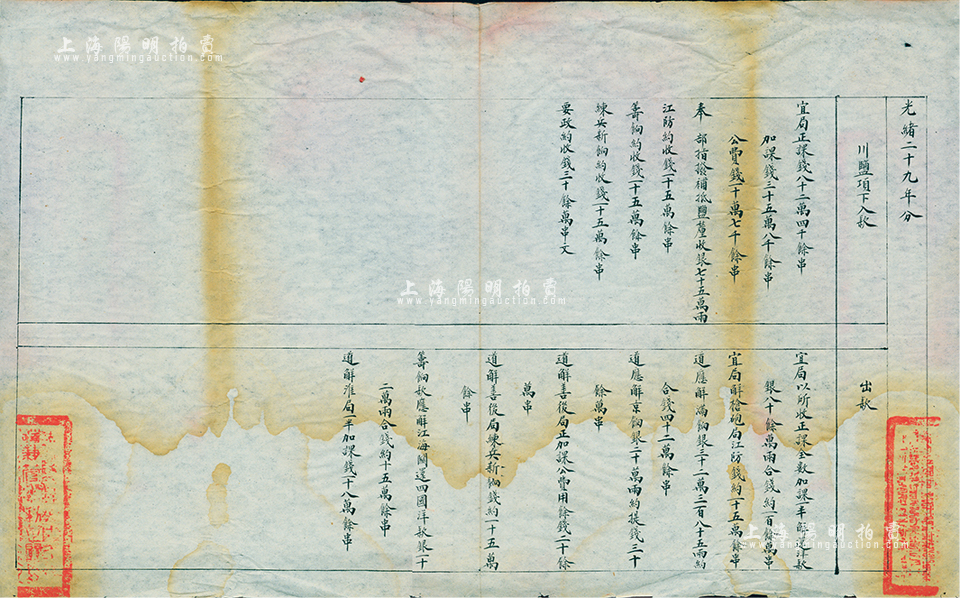 光緒二十九年分
川鹽項下入款
宜局正課錢八十二萬四千餘串
加課錢三十五萬八千餘串
公費錢一十萬七千餘串
奉 部指撥補抵鹽釐收銀七十五萬兩
江防約收錢一十五萬餘串
籌餉約收錢一十五萬餘串
練兵新餉約收錢一十五萬餘串
要政約收錢三十餘萬串文
出款
宜局以所收正課全數加課一半解道洋款
銀八十餘萬兩合錢約一百餘萬串
宜局解槍砲局江防錢約一十五萬餘串
道應解滿餉銀三十二萬三百八十五兩約
合錢四十二萬餘串
道應解京餉銀二十萬兩約提錢三十
餘萬串
道解善後局正加課公費用餘錢二十餘
萬串
道解善後局練兵新餉錢約一十五萬
餘串
籌餉款應解江海關還四國洋款銀一十
二萬兩合錢約十五萬餘串
道解淮局一半加課錢一十八萬餘串
上海陽明拍賣
www.yangmingauction.com
上海陽明拍賣
www.yangmingauction.com
上海陽明拍賣
www.yangmingauction.com